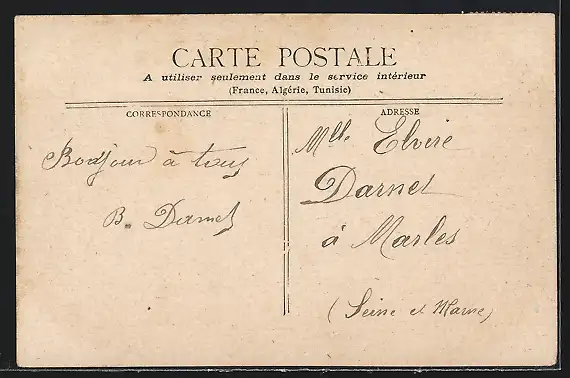 CARTE POSTALE
A utiliser seulement dans le service intérieur
(France, Algérie, Tunisie)
CORRESPONDANCE
ADRESSE
Bonjour à tous
B. Darnet
Mlle Elvire
Darnet
à Marles
(Seine et Marne)